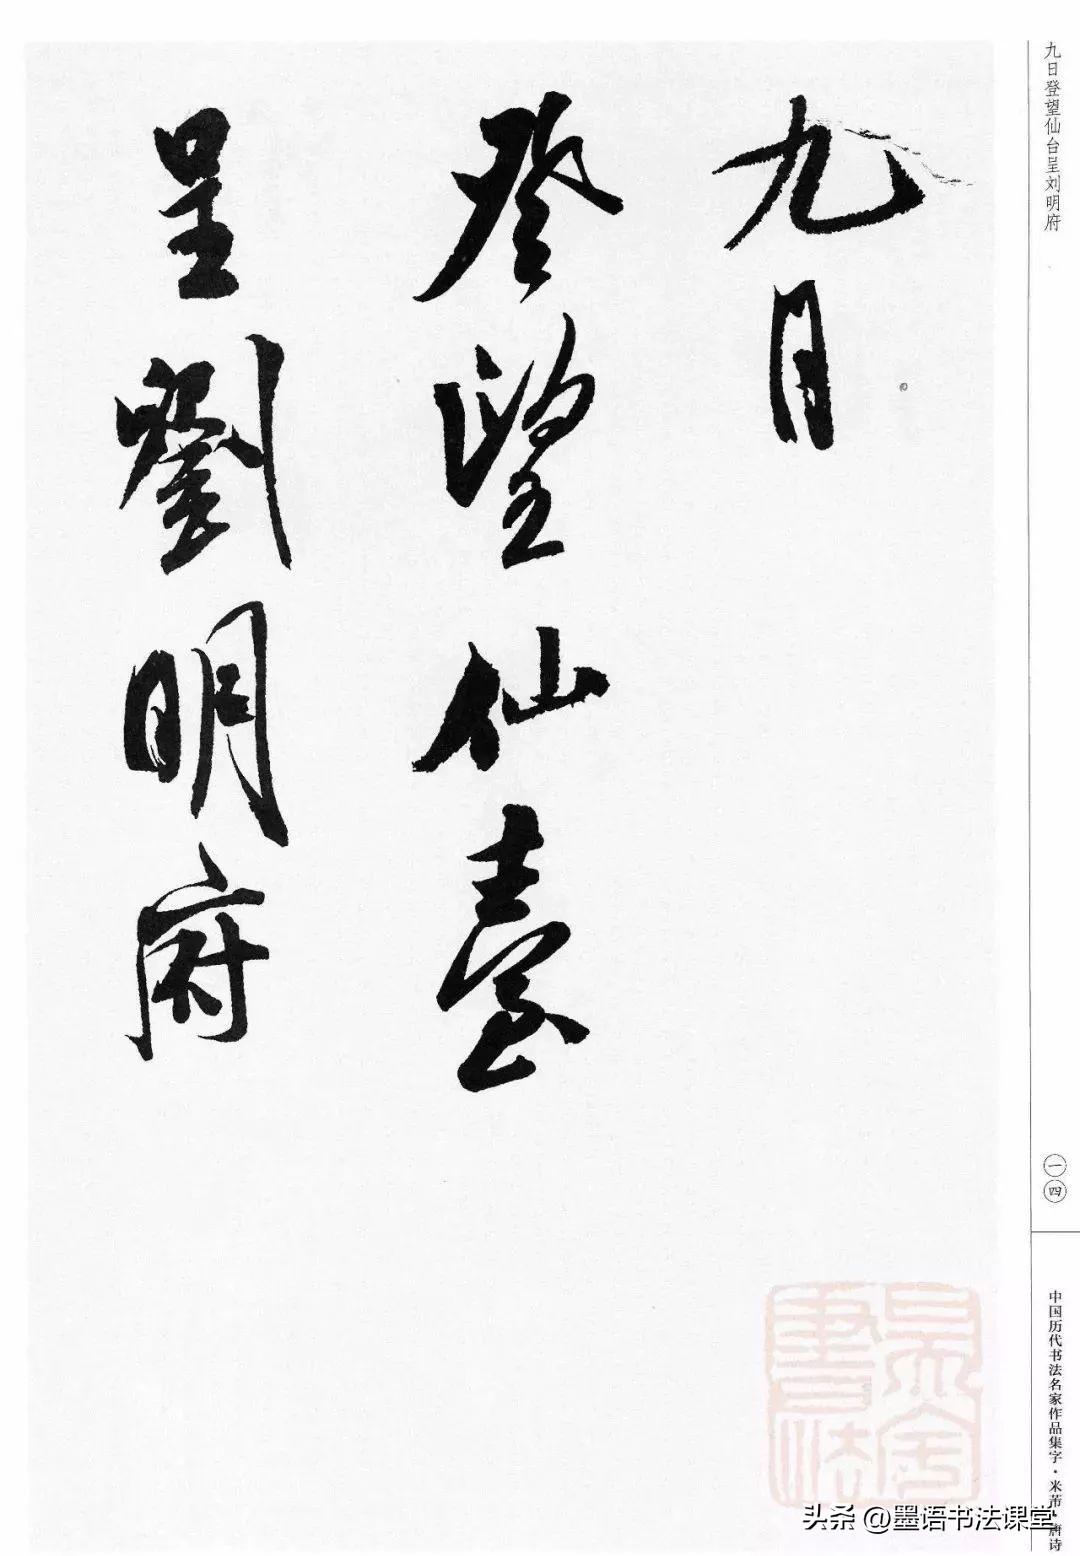 九日
登望仙臺
呈劉明府
九日登望仙台呈刘明府
一四
中国历代书法名家作品集字·米芾·唐诗
头条 @墨语书法课堂